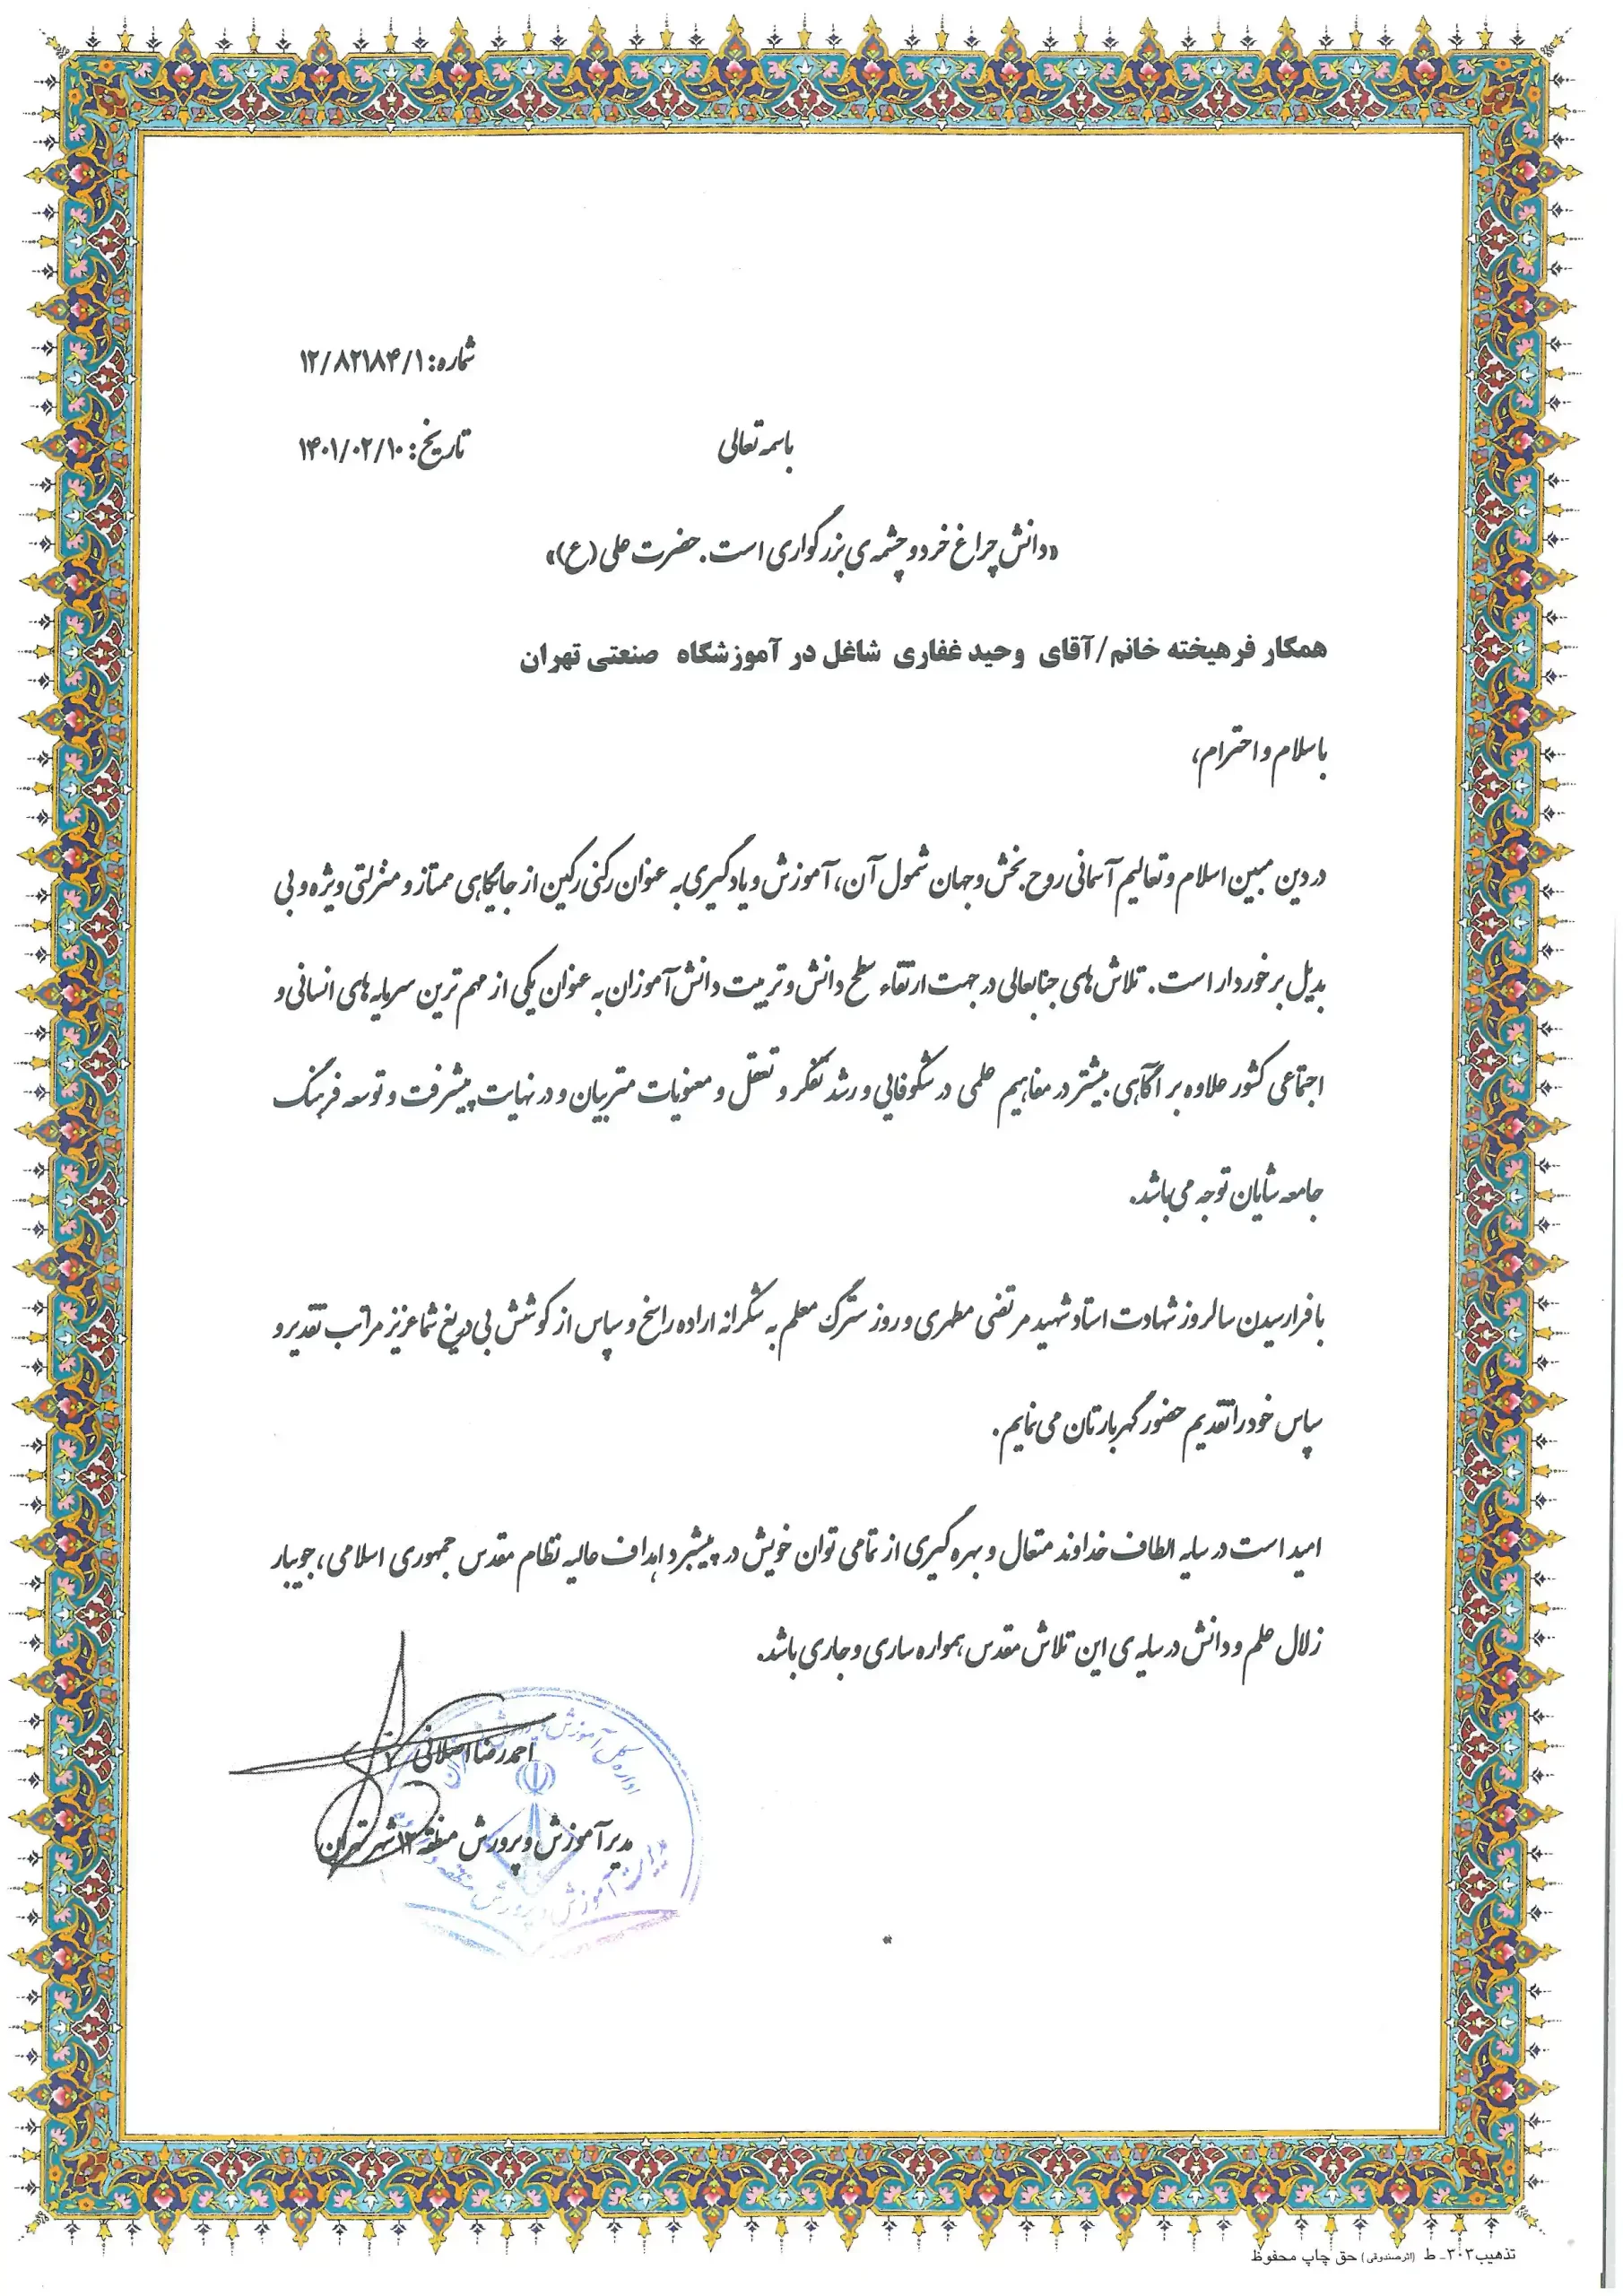 شماره: ۱۲/۸۲۱۸۴/۱
تاریخ: ۱۴۰۱/۰۲/۱۰
باسمه تعالی
«دانش چراغ خرد و چشمه ی بزرگواری است. حضرت علی (ع)»
همکار فرهیخته خانم/آقای وحید غفاری شاغل در آموزشگاه صنعتی تهران
با سلام و احترام،
در دین مبین اسلام و تعالیم آسمانی روح بخش و جهان شمول آن، آموزش و یادگیری به عنوان رکنی رکین از جایگاهی ممتاز و منزلتی ویژه و بی
بدیل برخوردار است. تلاش های جنابعالی در جهت ارتقاء سطح دانش و تربیت دانش آموزان به عنوان یکی از مهم ترین سرمایه های انسانی و
اجتماعی کشور علاوه بر آگاهی بیشتر در مفاهیم علمی در شکوفایی و رشد تفکر و تعقل و معنویات متربیان و در نهایت پیشرفت و توسعه فرهنگ
جامعه شایان توجه می باشد.
با فرا رسیدن سالروز شهادت استاد شهید مرتضی مطهری و روز سترگ معلم به شکرانه اراده راسخ و سپاس از کوشش بی دریغ شما عزیز مراتب تقدیر و
سپاس خود را تقدیم حضور گهربارتان می نمایم.
امید است در سایه الطاف خداوند متعال و بهره گیری از تمامی توان خویش در پیشبرد اهداف عالیه نظام مقدس جمهوری اسلامی، جویبار
زلال علم و دانش در سایه ی این تلاش مقدس، همواره ساری و جاری باشد.
احمدرضا اصلانی
مدیر آموزش و پرورش منطقه ۱۲ شهر تهران
اداره کل آموزش و پرورش
مدیریت آموزش و پرورش منطقه
تذهیب ۳۰۳ - ط (اثر صندوقی) حق چاپ محفوظ